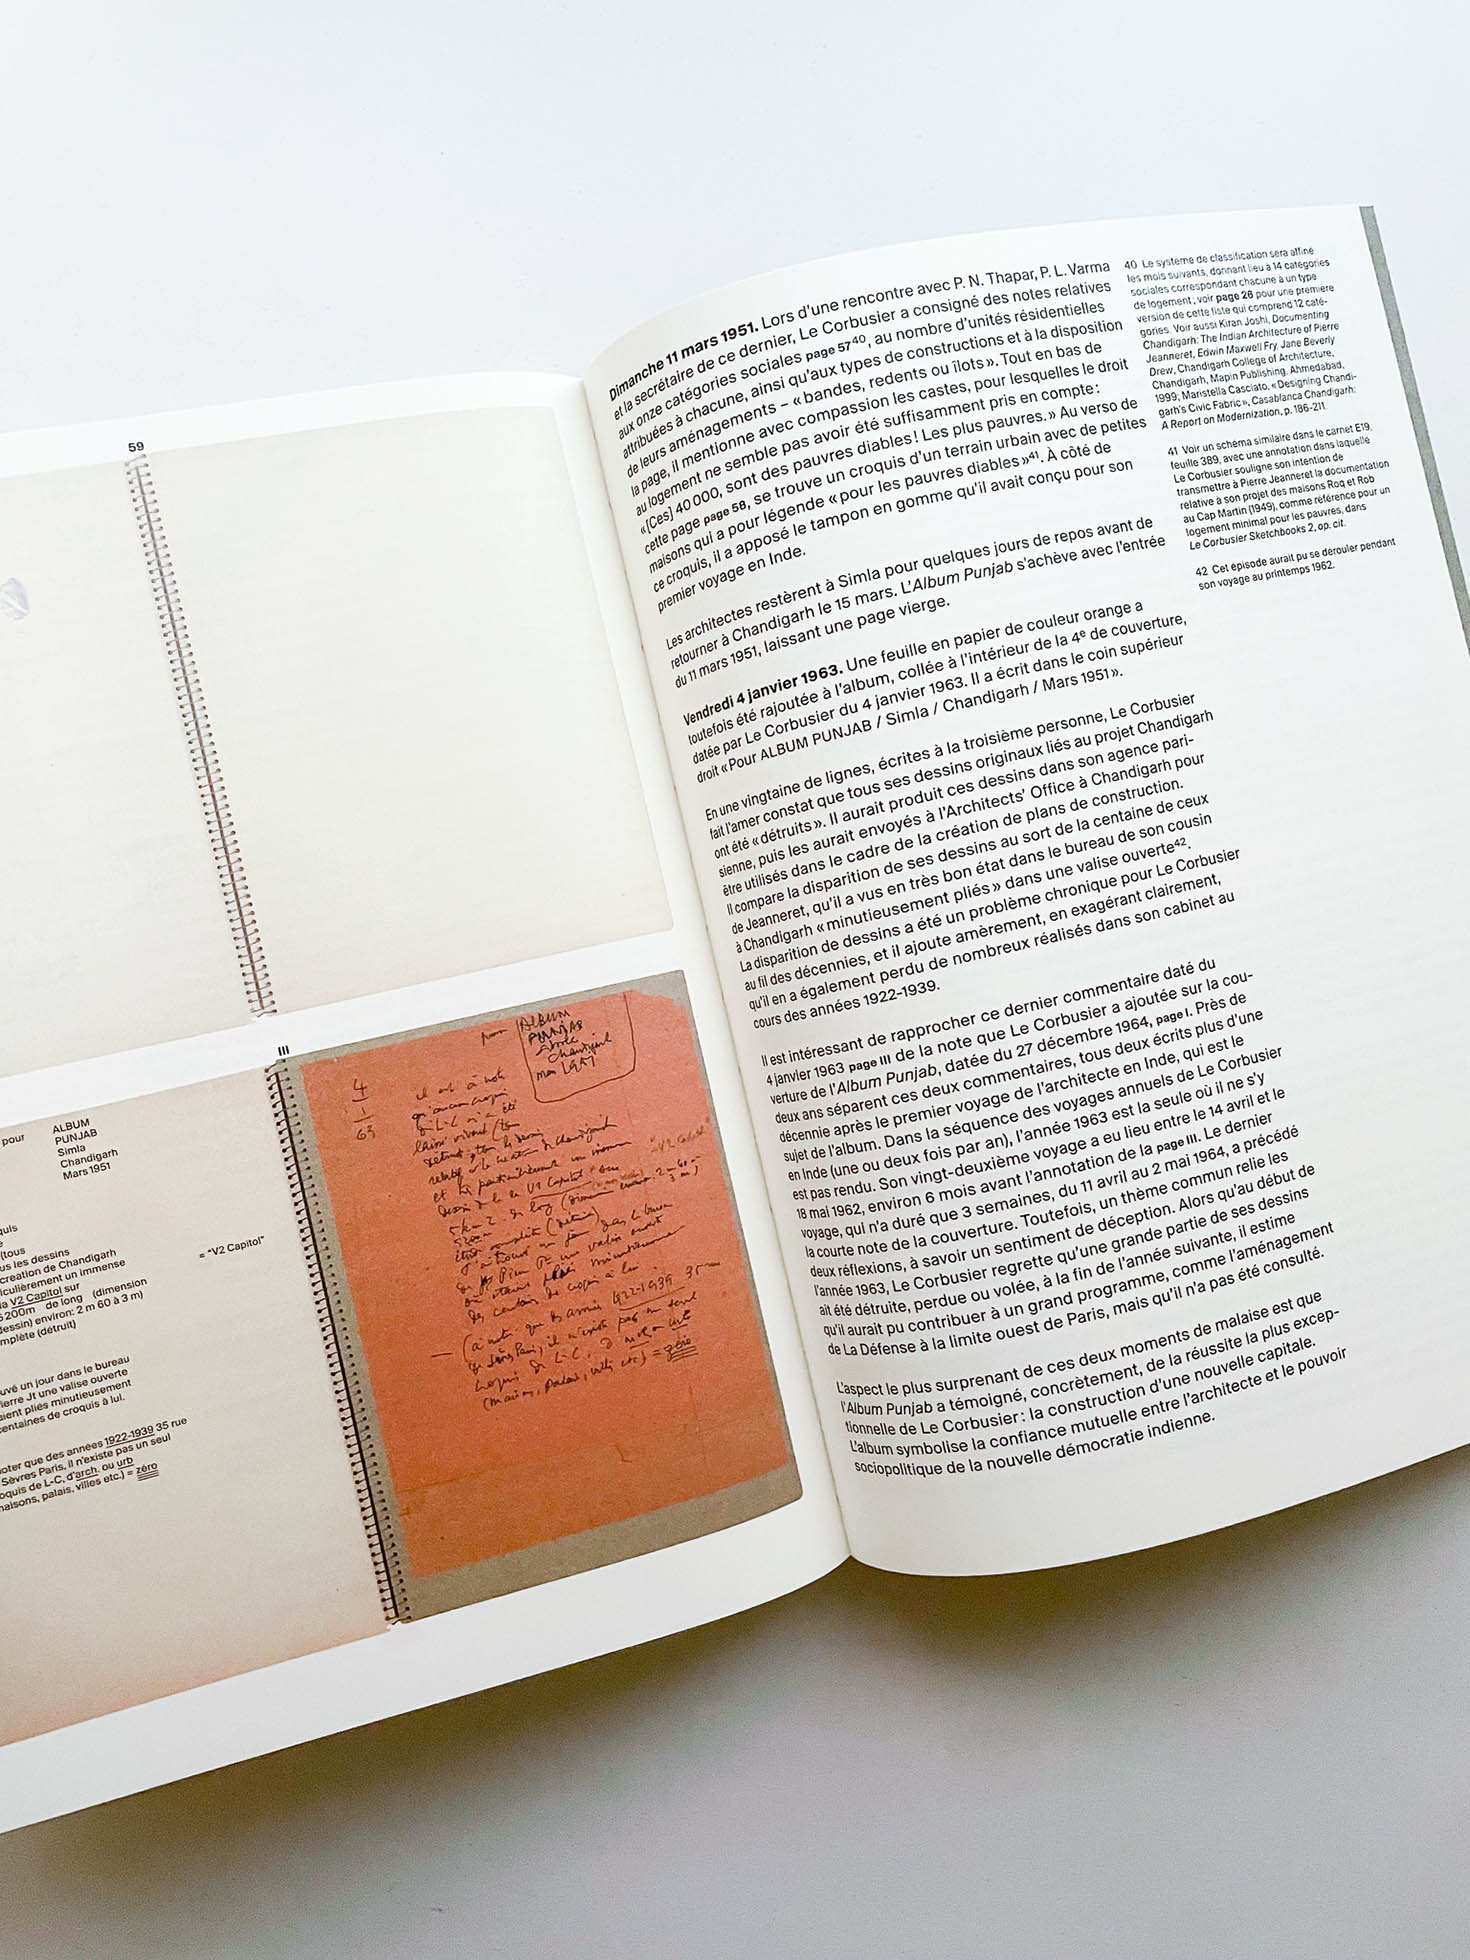 59
III
pour ALBUM
PUNJAB
Simla
Chandigarh
Mars 1951
quis
(tous
us les dessins
creation de Chandigarh
iculièrement un immense
= "V2 Capitol"
a V2 Capitol sur
200m de long (dimension
dessin) environ: 2 m 60 à 3 m)
mplète (détruit)
uvé un jour dans le bureau
ierre Jt une valise ouverte
aient pliés minutieusement
centaines de croquis à lui.
oter que des années 1922-1939 35 rue
Sèvres Paris, il n'existe pas un seul
oquis de L-C, d'arch. ou urb
naisons, palais, villes etc.) = zéro
pour ALBUM
PUNJAB
Simla
Chandigarh
mars 1951
4
1
63
il est à noter
qu'aucun croquis
de L-C n'a été
"V2 Capitol"
(à noter que des années 1922-1939 35 rue
de Sèvres Paris, il n'existe pas un seul
croquis de L-C, d'arch ou urb
(maisons, palais, villes etc.) = zéro
Dimanche 11 mars 1951. Lors d'une rencontre avec P. N. Thapar, P. L. Varma
et la secrétaire de ce dernier, Le Corbusier a consigné des notes relatives
aux onze catégories sociales page 57⁴⁰, au nombre d'unités résidentielles
attribuées à chacune, ainsi qu'aux types de constructions et à la disposition
de leurs aménagements – « bandes, redents ou îlots ». Tout en bas de
la page, il mentionne avec compassion les castes, pour lesquelles le droit
au logement ne semble pas avoir été suffisamment pris en compte :
« [Ces] 40 000, sont des pauvres diables ! Les plus pauvres. » Au verso de
cette page page 58, se trouve un croquis d'un terrain urbain avec de petites
maisons qui a pour légende « pour les pauvres diables »⁴¹. À côté de
ce croquis, il a apposé le tampon en gomme qu'il avait conçu pour son
premier voyage en Inde.
Les architectes restèrent à Simla pour quelques jours de repos avant de
retourner à Chandigarh le 15 mars. L'Album Punjab s'achève avec l'entrée
du 11 mars 1951, laissant une page vierge.
Vendredi 4 janvier 1963. Une feuille en papier de couleur orange a
toutefois été rajoutée à l'album, collée à l'intérieur de la 4e de couverture,
datée par Le Corbusier du 4 janvier 1963. Il a écrit dans le coin supérieur
droit « Pour ALBUM PUNJAB / Simla / Chandigarh / Mars 1951 ».
En une vingtaine de lignes, écrites à la troisième personne, Le Corbusier
fait l'amer constat que tous ses dessins originaux liés au projet Chandigarh
ont été « détruits ». Il aurait produit ces dessins dans son agence pari-
sienne, puis les aurait envoyés à l'Architects' Office à Chandigarh pour
être utilisés dans le cadre de la création de plans de construction.
Il compare la disparition de ses dessins au sort de la centaine de ceux
de Jeanneret, qu'il a vus en très bon état dans le bureau de son cousin
à Chandigarh « minutieusement pliés » dans une valise ouverte⁴².
La disparition de dessins a été un problème chronique pour Le Corbusier
au fil des décennies, et il ajoute amèrement, en exagérant clairement,
qu'il en a également perdu de nombreux réalisés dans son cabinet au
cours des années 1922-1939.
Il est intéressant de rapprocher ce dernier commentaire daté du
4 janvier 1963 page III de la note que Le Corbusier a ajoutée sur la cou-
verture de l'Album Punjab, datée du 27 décembre 1964, page I. Près de
deux ans séparent ces deux commentaires, tous deux écrits plus d'une
décennie après le premier voyage de l'architecte en Inde, qui est le
sujet de l'album. Dans la séquence des voyages annuels de Le Corbusier
en Inde (une ou deux fois par an), l'année 1963 est la seule où il ne s'y
est pas rendu. Son vingt-deuxième voyage a eu lieu entre le 14 avril et le
18 mai 1962, environ 6 mois avant l'annotation de la page III. Le dernier
voyage, qui n'a duré que 3 semaines, du 11 avril au 2 mai 1964, a précédé
la courte note de la couverture. Toutefois, un thème commun relie les
deux réflexions, à savoir un sentiment de déception. Alors qu'au début de
l'année 1963, Le Corbusier regrette qu'une grande partie de ses dessins
ait été détruite, perdue ou volée, à la fin de l'année suivante, il estime
qu'il aurait pu contribuer à un grand programme, comme l'aménagement
de La Défense à la limite ouest de Paris, mais qu'il n'a pas été consulté.
L'aspect le plus surprenant de ces deux moments de malaise est que
l'Album Punjab a témoigné, concrètement, de la réussite la plus excep-
tionnelle de Le Corbusier : la construction d'une nouvelle capitale.
L'album symbolise la confiance mutuelle entre l'architecte et le pouvoir
sociopolitique de la nouvelle démocratie indienne.
40 Le système de classification sera affiné
les mois suivants, donnant lieu à 14 catégories
sociales correspondant chacune à un type
de logement ; voir page 26 pour une première
version de cette liste qui comprend 12 caté-
gories. Voir aussi Kiran Joshi, Documenting
Chandigarh: The Indian Architecture of Pierre
Jeanneret, Edwin Maxwell Fry, Jane Beverly
Drew, Chandigarh College of Architecture,
Chandigarh, Mapin Publishing, Ahmedabad,
1999; Maristella Casciato, « Designing Chandi-
garh's Civic Fabric », Casablanca Chandigarh:
A Report on Modernization, p. 186-211.
41 Voir un schéma similaire dans le carnet E19,
feuille 389, avec une annotation dans laquelle
Le Corbusier souligne son intention de
transmettre à Pierre Jeanneret la documentation
relative à son projet des maisons Roq et Rob
au Cap Martin (1949), comme référence pour un
logement minimal pour les pauvres, dans
Le Corbusier Sketchbooks 2, op. cit.
42 Cet épisode aurait pu se dérouler pendant
son voyage au printemps 1962.